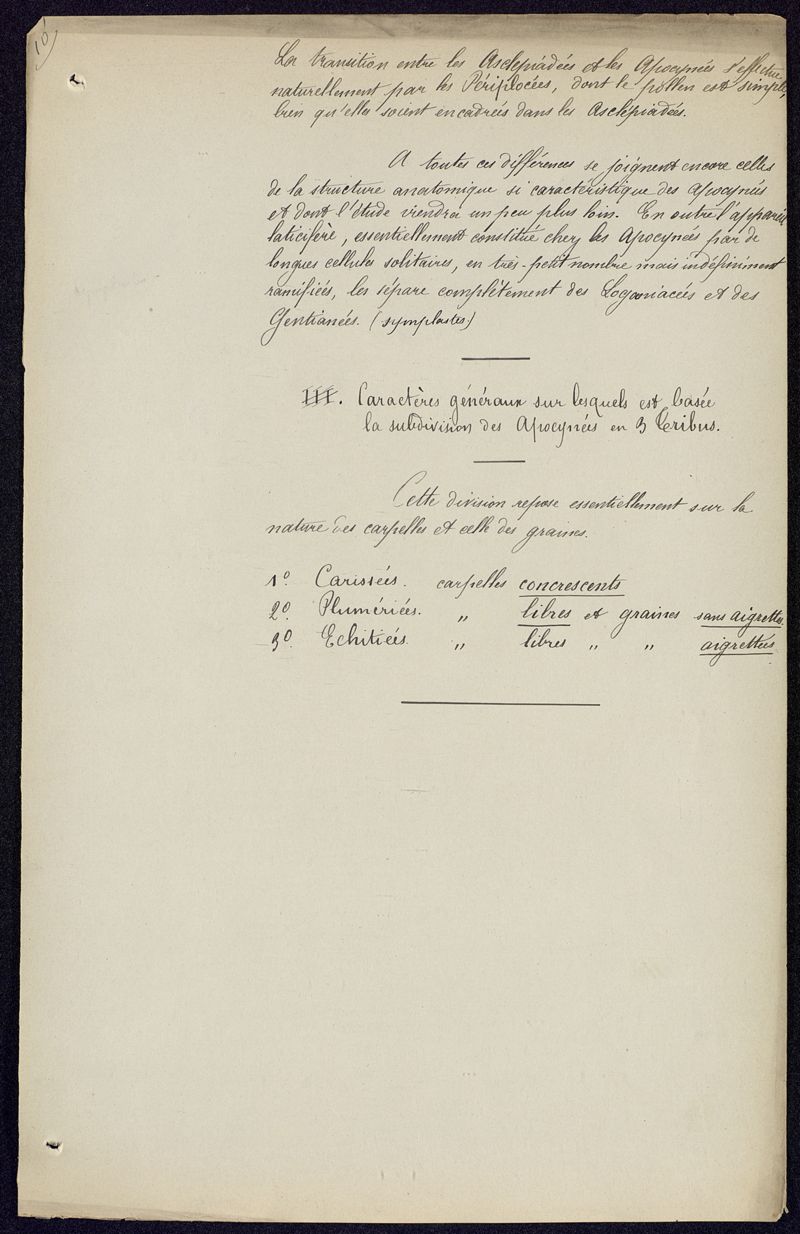 10)
La transition entre les Asclépiadées et les Apocynées s'effectue
naturellement par les Périplocées, dont le pollen est simple,
bien qu'elles soient encadrées dans les Asclépiadées.
A toutes ces différences se joignent encore celles
de la structure anatomique si caractéristique des Apocynées
et dont l'étude viendra un peu plus loin. En outre l'appareil
laticifère, essentiellement constitué chez les Apocynées par de
longues cellules solitaires, en très-petit nombre mais indéfiniment
ramifiées, les sépare complètement des Loganiacées et des
Gentianées. (symplastes)
III. Caractères généraux sur lesquels est basée
la subdivision des Apocynées en 3 Tribus.
Cette division repose essentiellement sur la
nature des carpelles et celle des graines.
1º Carissées. carpelles concrescents
2º Plumériées. „ libres et graines sans aigrettes
3º Echitiées „ libres „ „ aigrettées